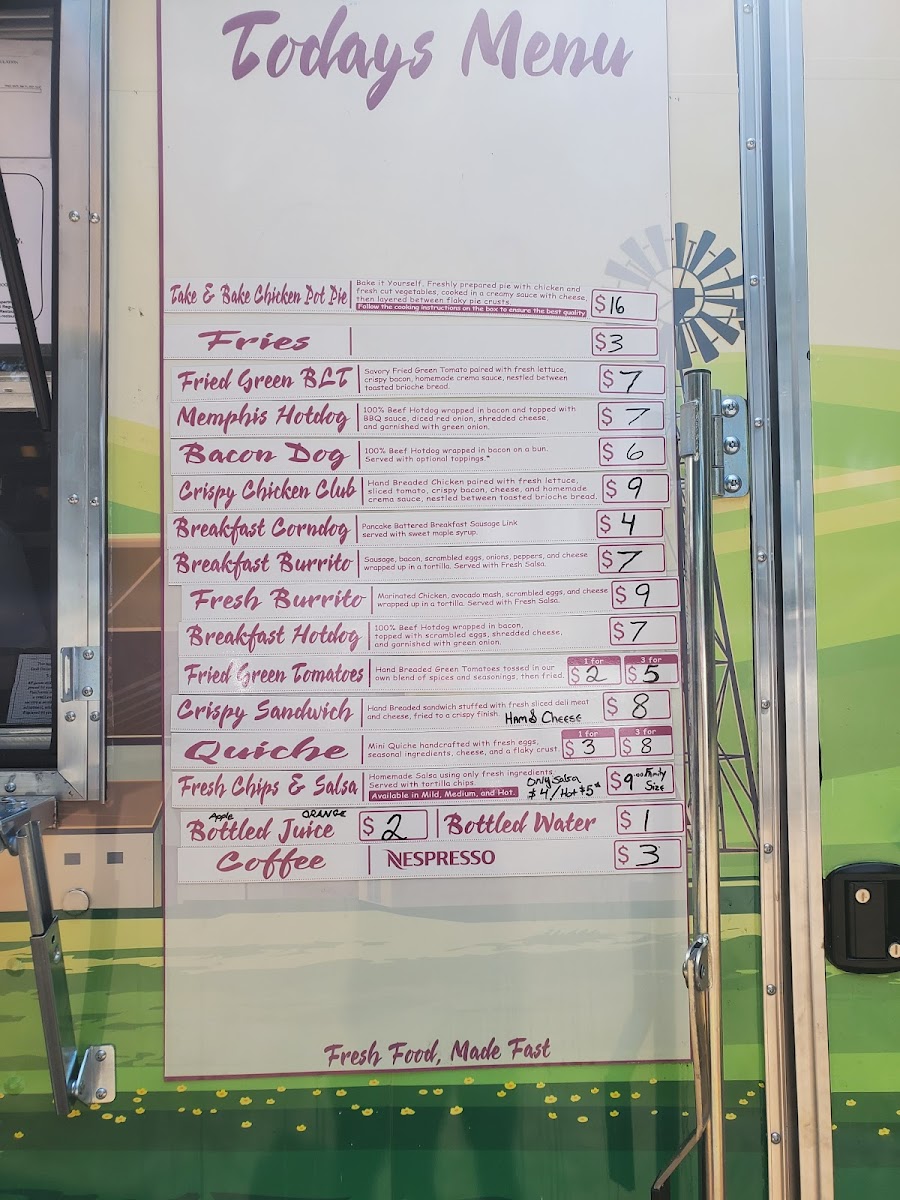 Todays Menu
Take & Bake Chicken Pot Pie
Bake it Yourself. Freshly prepared pie with chicken and
fresh cut vegetables, cooked in a creamy sauce with cheese,
then layered between flaky pie crusts.
Follow the cooking instructions on the box to ensure the best quality
$16
Fries
$3
Fried Green BLT
Savory Fried Green Tomato paired with fresh lettuce,
crispy bacon, homemade crema sauce, nestled between
toasted brioche bread.
$7
Memphis Hotdog
100% Beef Hotdog wrapped in bacon and topped with
BBQ sauce, diced red onion, shredded cheese,
and garnished with green onion.
$7
Bacon Dog
100% Beef Hotdog wrapped in bacon on a bun.
Served with optional toppings.*
$6
Crispy Chicken Club
Hand Breaded Chicken paired with fresh lettuce,
sliced tomato, crispy bacon, cheese, and homemade
crema sauce, nestled between toasted brioche bread.
$9
Breakfast Corndog
Pancake Battered Breakfast Sausage Link
served with sweet maple syrup.
$4
Breakfast Burrito
Sausage, bacon, scrambled eggs, onions, peppers, and cheese
wrapped up in a tortilla. Served with Fresh Salsa.
$7
Fresh Burrito
Marinated Chicken, avocado mash, scrambled eggs, and cheese
wrapped up in a tortilla. Served with Fresh Salsa.
$9
Breakfast Hotdog
100% Beef Hotdog wrapped in bacon,
topped with scrambled eggs, shredded cheese,
and garnished with green onion.
$7
Fried Green Tomatoes
Hand Breaded Green Tomatoes tossed in our
own blend of spices and seasonings, then fried.
1 for
$2
3 for
$5
Crispy Sandwich
Hand Breaded sandwich stuffed with fresh sliced deli meat
and cheese, fried to a crispy finish.
Ham & Cheese
$8
Quiche
Mini Quiche handcrafted with fresh eggs,
seasonal ingredients, cheese, and a flaky crust.
1 for
$3
3 for
$8
Fresh Chips & Salsa
Homemade Salsa using only fresh ingredients.
Served with tortilla chips.
Available in Mild, Medium, and Hot.
Only Salsa
$4/Hot $5
$9.00 Family
Size
Apple ORANGE
Bottled Juice
$2
Bottled Water
$1
Coffee
NESPRESSO
$3
Fresh Food, Made Fast